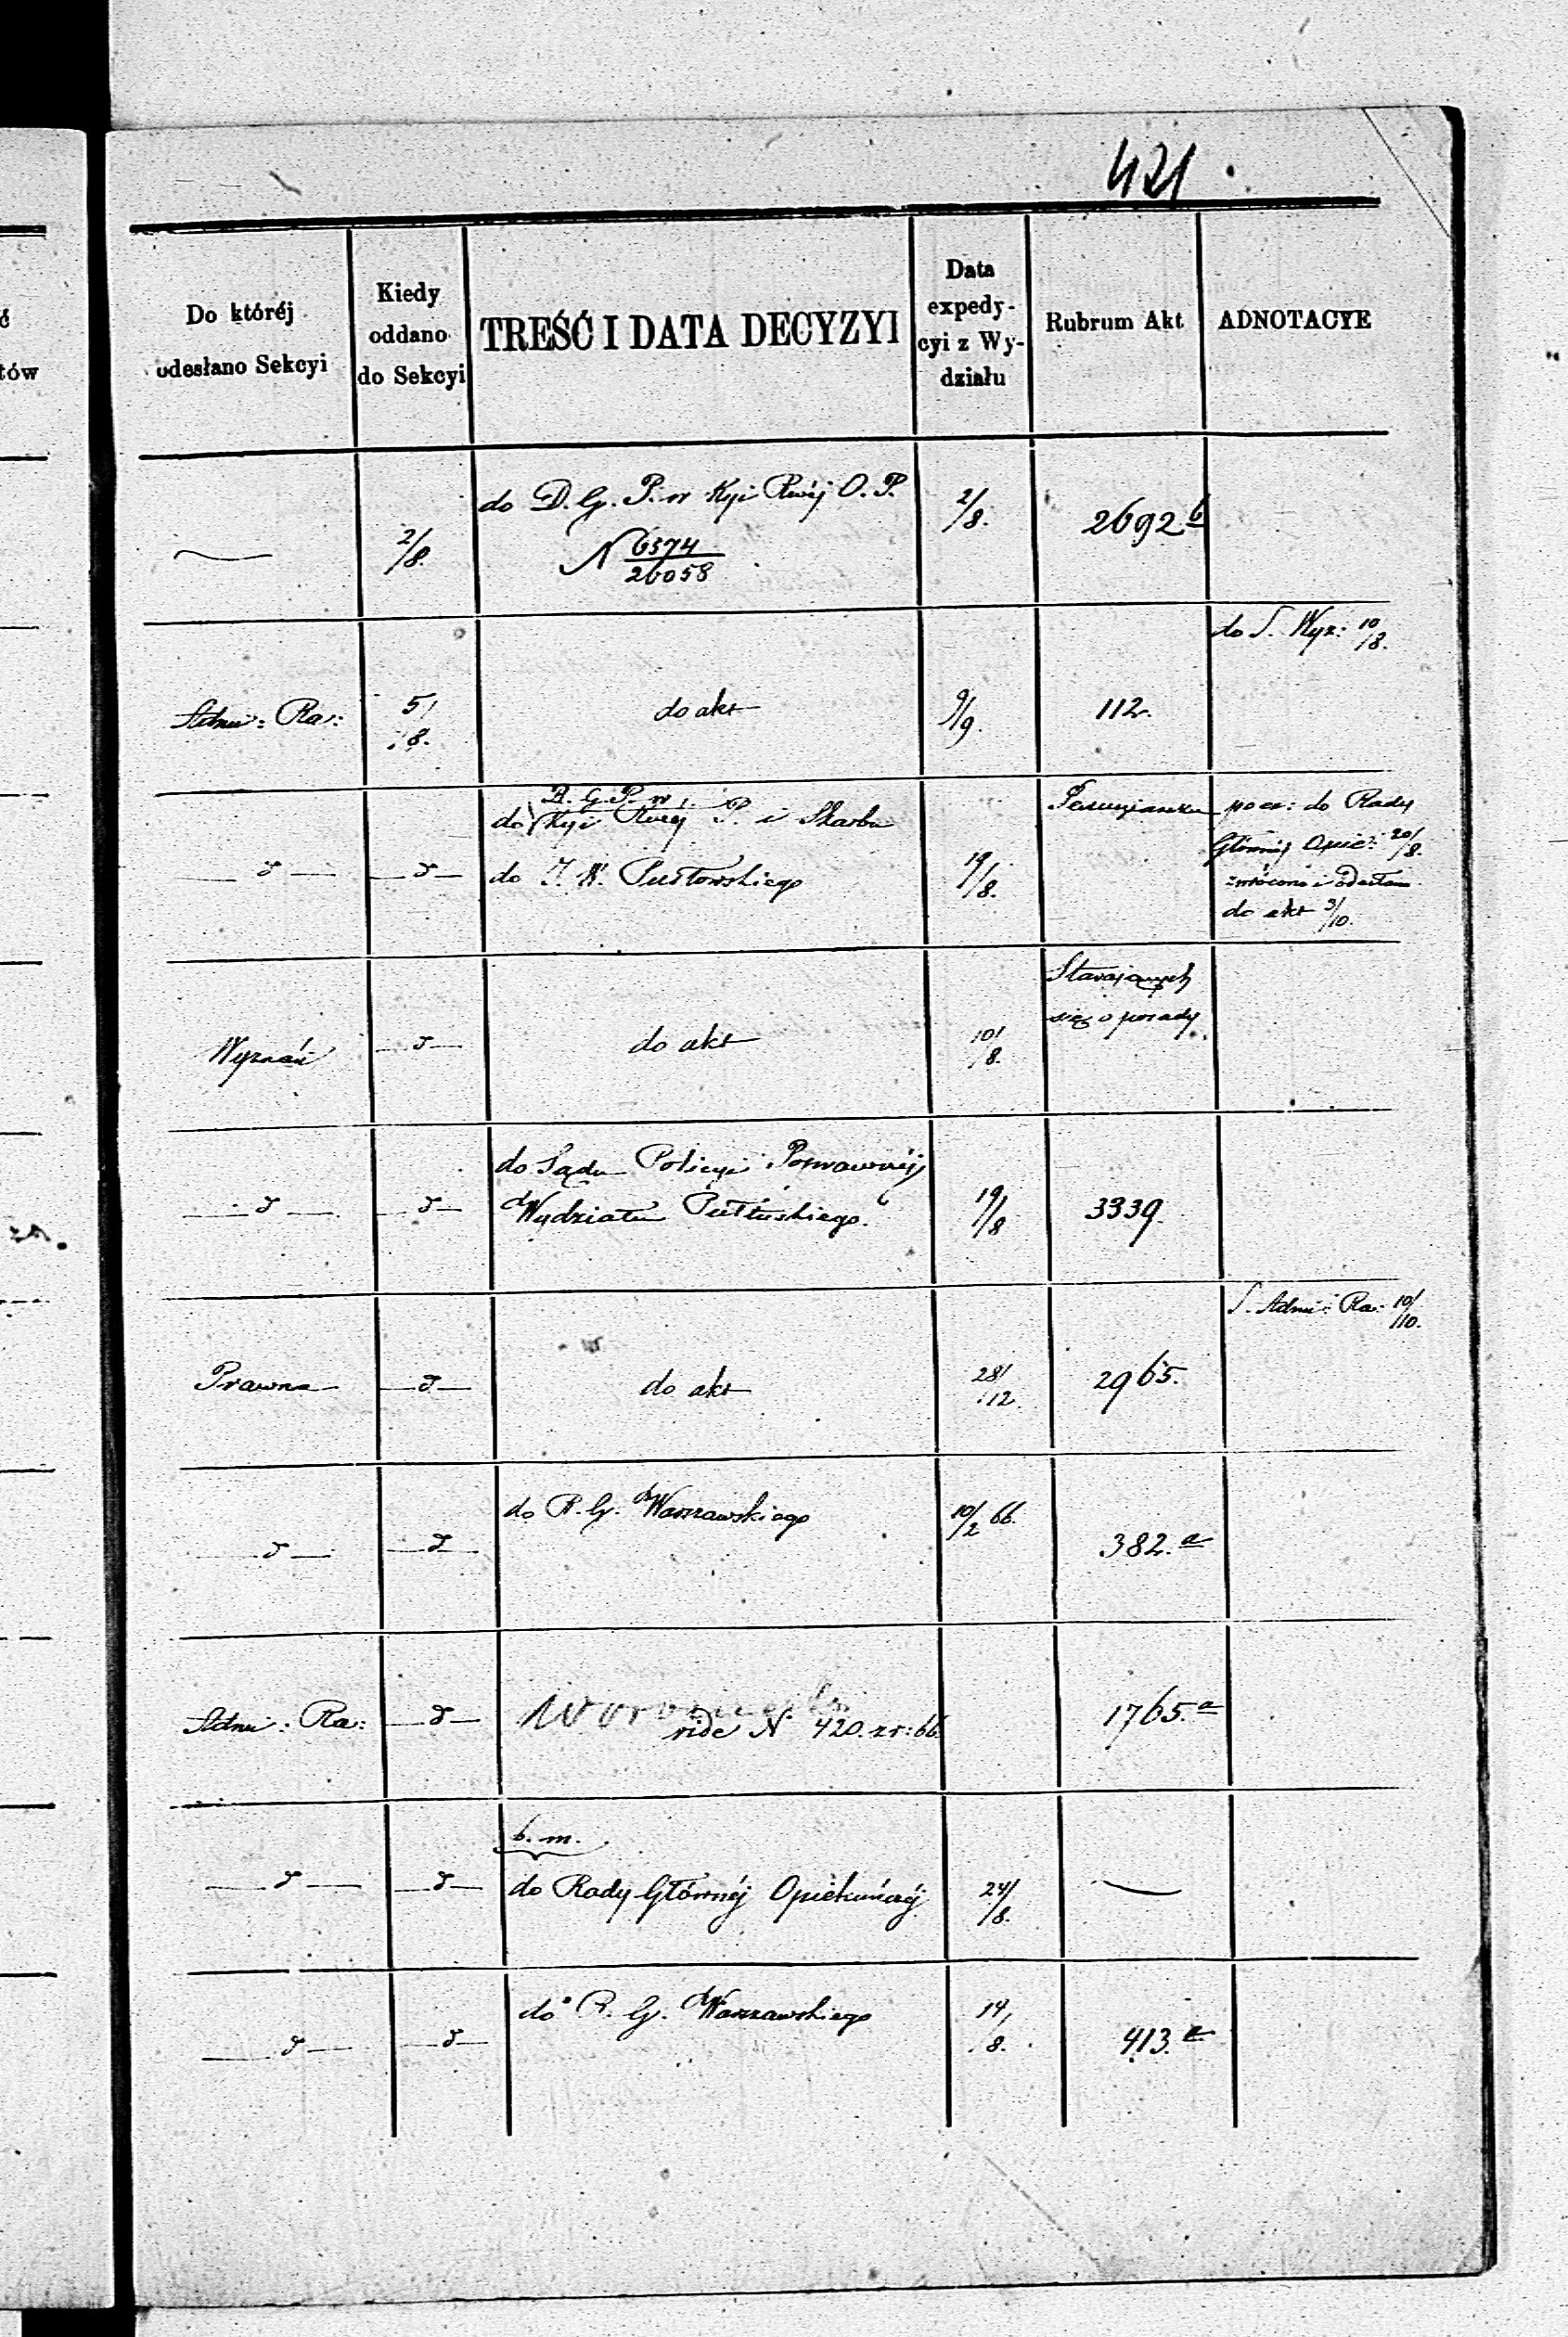 421
Do któréj odesłano Sekcyi
Kiedy oddano do Sekcyi
TREŚĆ I DATA DECYZYI
Data expedycyi z Wydziału
Rubrum Akt
ADNOTACYE
2/8.
do D. G. P. w Kyi Rwéj O. P.
N 6574/26058
2/8.
2692 b
Admi: Ra:
5/8.
do akt
9/9.
112.
do S. Wyz: 10/8.
D. G. P. w
do Kyi Rwej P. i Skarbu
do J. W. Pusłowskiego
19/8.
do Rady
Głównéj Opiek: 20/8.
zwrócono i odesłano
do akt 3/10.
Wyznań
do akt
10/8.
Starających
się o posady
do Sądu Policyi Poprawczéj
Wydziału Pułtuskiego.
19/8
3339.
Prawna
do akt
28/12.
2965.
S. Admi: Ra: 10/10.
do R. G. Warszawskiego
10/2 66.
382. a
Admi: Ra:
vide N 420. z r: 66
1765. a
b. m.
do Rady Głównéj Opiekuńczéj
24/8.
do R. G. Warszawskiego
14/8.
413. a